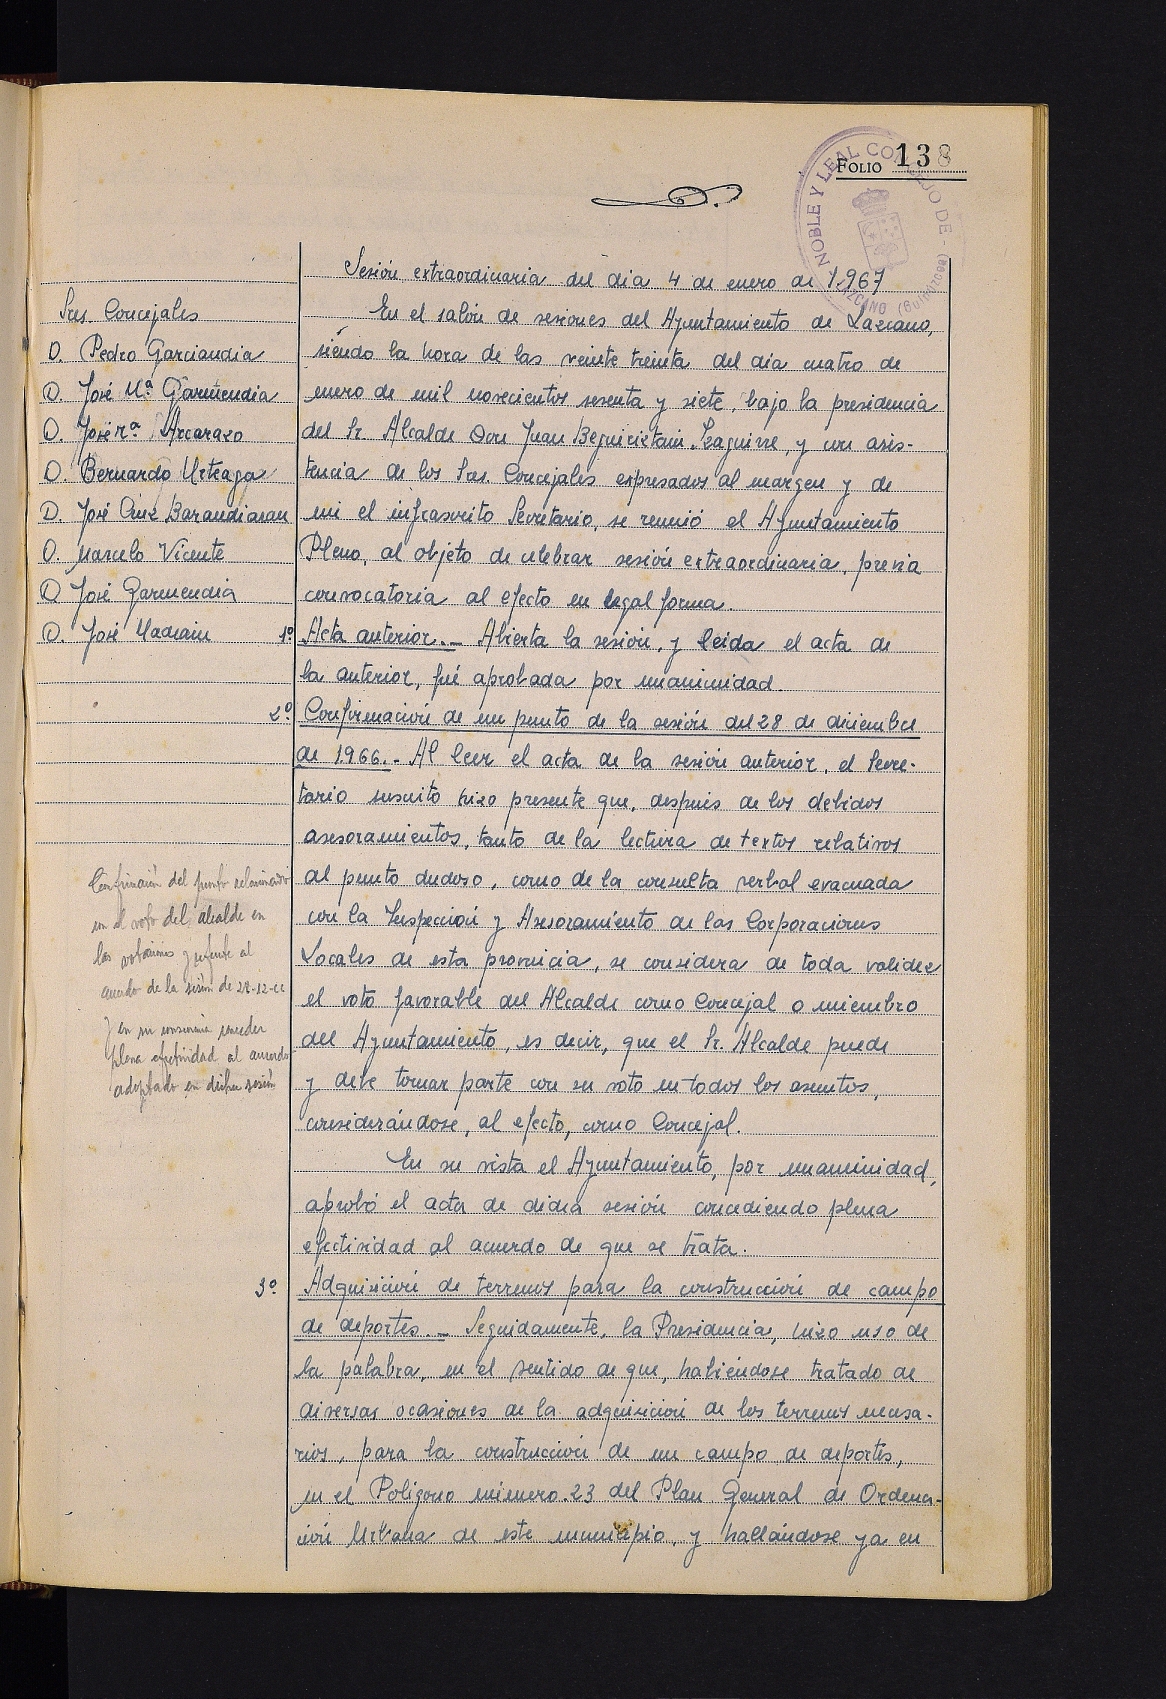 FOLIO 138
NOBLE Y LEAL CONCEJO DE - LAZCANO (Guipúzcoa)
Sesión extraordinaria del día 4 de enero de 1.967
Sres. Concejales
D. Pedro Garciandia
D. José Mª Garmendia
D. José Mª Arcarazo
D. Bernardo Urteaga
D. José Cruz Barandiaran
D. Marcelo Vicente
D. José Garmendia
D. José
En el salón de sesiones del Ayuntamiento de Lazcano,
siendo la hora de las veinte treinta del día cuatro de
enero de mil novecientos sesenta y siete, bajo la presidencia
del Sr. Alcalde Don Juan Beguiristain Izaguirre, y con asis-
tencia de los Sres. Concejales expresados al margen y de
mi el infrascrito Secretario, se reunió el Ayuntamiento
Pleno, al objeto de celebrar sesión extraordinaria, previa
convocatoria al efecto en legal forma.
1º Acta anterior.- Abierta la sesión, y leida el acta de
la anterior, fué aprobada por unanimidad.
2º Confirmación de un punto de la sesión del 28 de diciembre
de 1.966.- Al leer el acta de la sesión anterior, el Secre-
tario suscrito hizo presente que, después de los debidos
asesoramientos, tanto de la lectura de textos relativos
al punto dudoso, como de la consulta verbal evacuada
con la Inspección y Asesoramiento de las Corporaciones
Locales de esta provincia, se considera de toda validez
el voto favorable del Alcalde como Concejal o miembro
del Ayuntamiento, es decir, que el Sr. Alcalde puede
y debe tomar parte con su voto en todos los asuntos,
considerándose, al efecto, como Concejal.
Confirmación del punto relacionado
con el voto del alcalde en
las votaciones y referente al
acuerdo de la sesión de 28-12-66
y en su consecuencia conceder
plena efectividad al acuerdo
adoptado en dicha sesión
En su vista el Ayuntamiento, por unanimidad,
aprobó el acta de dicha sesión concediendo plena
efectividad al acuerdo de que se trata.
3º Adquisición de terrenos para la construcción de campo
de deportes.- Seguidamente, la Presidencia, hizo uso de
la palabra, en el sentido de que, habiéndose tratado de
diversas ocasiones de la adquisición de los terrenos necesa-
rios, para la construcción de un campo de deportes,
en el Polígono número 23 del Plan General de Ordena-
ción Urbana de este municipio, y hallándose ya en